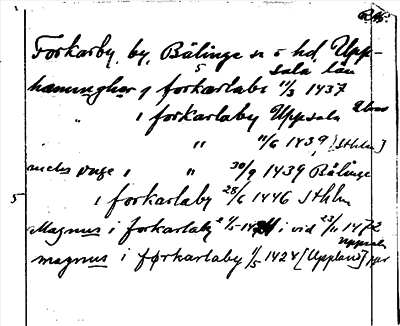 R.M.
Forkarby, by, Bälinge sn o hd, Upp-
sala län
hæmingher j forkarlabi 11/3 1437
i forkarlaby Uppsala
" 11/6 1439 [Sthlm]
anders unge i " 30/9 1439 Bälinge
5
i forkarlaby 28/6 1446 Sthlm
Magnus i forkarlaby i vid 23/11 1472
Uppsala
magnus i førkarlaby 1/5 1424 [Uppland] ppr